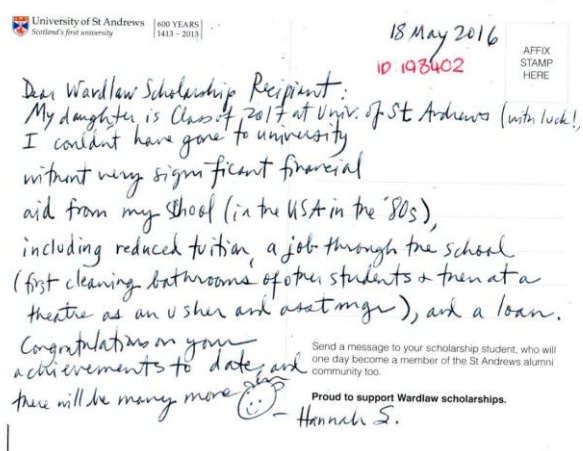 University of St Andrews
Scotland's first university
600 YEARS
1413 – 2013
18 May 2016
ID 193402
AFFIX
STAMP
HERE
Dear Wardlaw Scholarship Recipient:
My daughter is Class of 2017 at Univ. of St Andrews (with luck!)
I couldn't have gone to university
without very significant financial
aid from my school (in the USA in the '80s),
including reduced tuition, a job through the school
(first cleaning bathrooms of other students & then at a
theatre as an usher and asst mgr), and a loan.
Congratulations on your
achievements to date, and
there will be many more
– Hannah S.
Send a message to your scholarship student, who will
one day become a member of the St Andrews alumni
community too.
Proud to support Wardlaw scholarships.